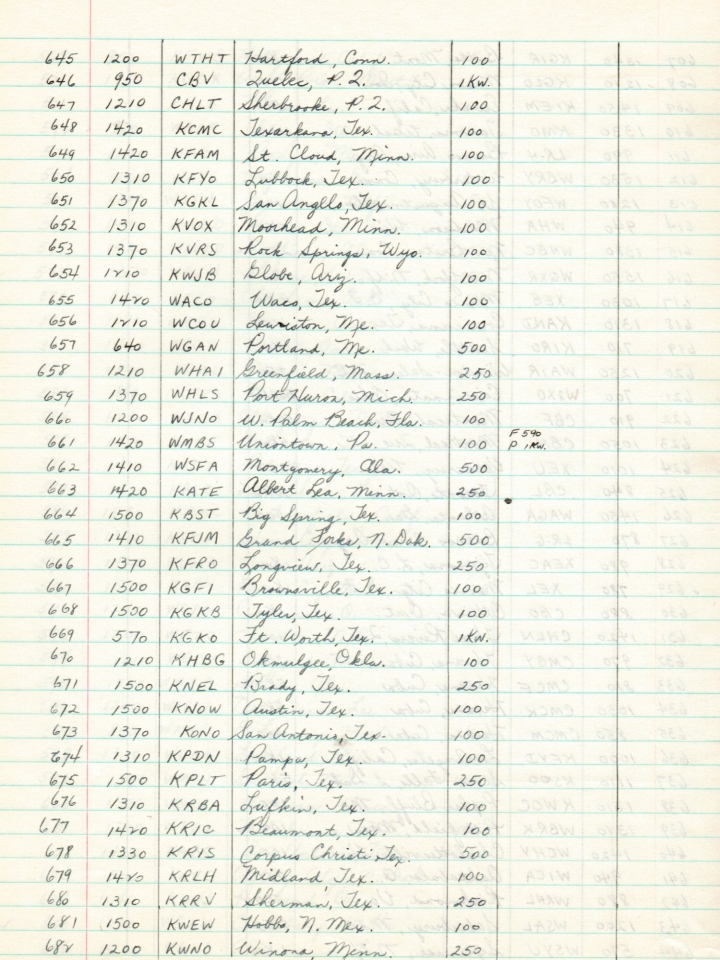 645 1200 WTHT Hartford, Conn. 100
646 950 CBV Quebec, P. Q. 1 Kw.
647 1210 CHLT Sherbrooke, P. Q. 100
648 1420 KCMC Texarkana, Tex. 100
649 1420 KFAM St. Cloud, Minn. 100
650 1310 KFYO Lubbock, Tex. 100
651 1370 KGKL San Angllo, Tex. 100
652 1310 KVOX Moorhead, Minn. 100
653 1370 KVRS Rock Springs, Wyo. 100
654 1210 KWJB Globe, Ariz. 100
655 1420 WACO Waco, Tex. 100
656 1210 WCOU Lewiston, Me. 100
657 640 WGAN Portland, Me. 500
658 1210 WHAI Greenfield, Mass. 250
659 1370 WHLS Port Huron, Mich. 250
660 1200 WJNO W. Palm Beach, Fla. 100
661 1420 WMBS Uniontown, Pa. 100 F 590 P 1 Kw.
662 1410 WSFA Montgomery, Ala. 500
663 1420 KATE Albert Lea, Minn. 250
664 1500 KBST Big Spring, Tex. 100
665 1410 KFJM Grand Forks, N. Dak. 500
666 1370 KFRO Longview, Tex. 250
667 1500 KGFI Brownsville, Tex. 100
668 1500 KGKB Tyler, Tex. 100
669 570 KGKO Ft. Worth, Tex. 1 Kw.
670 1210 KHBG Okmulgee, Okla. 100
671 1500 KNEL Brady, Tex. 250
672 1500 KNOW Austin, Tex. 100
673 1370 KONO San Antonio, Tex. 100
674 1310 KPDN Pampa, Tex. 100
675 1500 KPLT Paris, Tex. 250
676 1310 KRBA Lufkin, Tex. 100
677 1420 KRIC Beaumont, Tex. 100
678 1330 KRIS Corpus Christi Tex. 500
679 1420 KRLH Midland, Tex. 100
680 1310 KRRV Sherman, Tex. 250
681 1500 KWEW Hobbs, N. Mex. 100
682 1200 KWNO Winona, Minn. 250